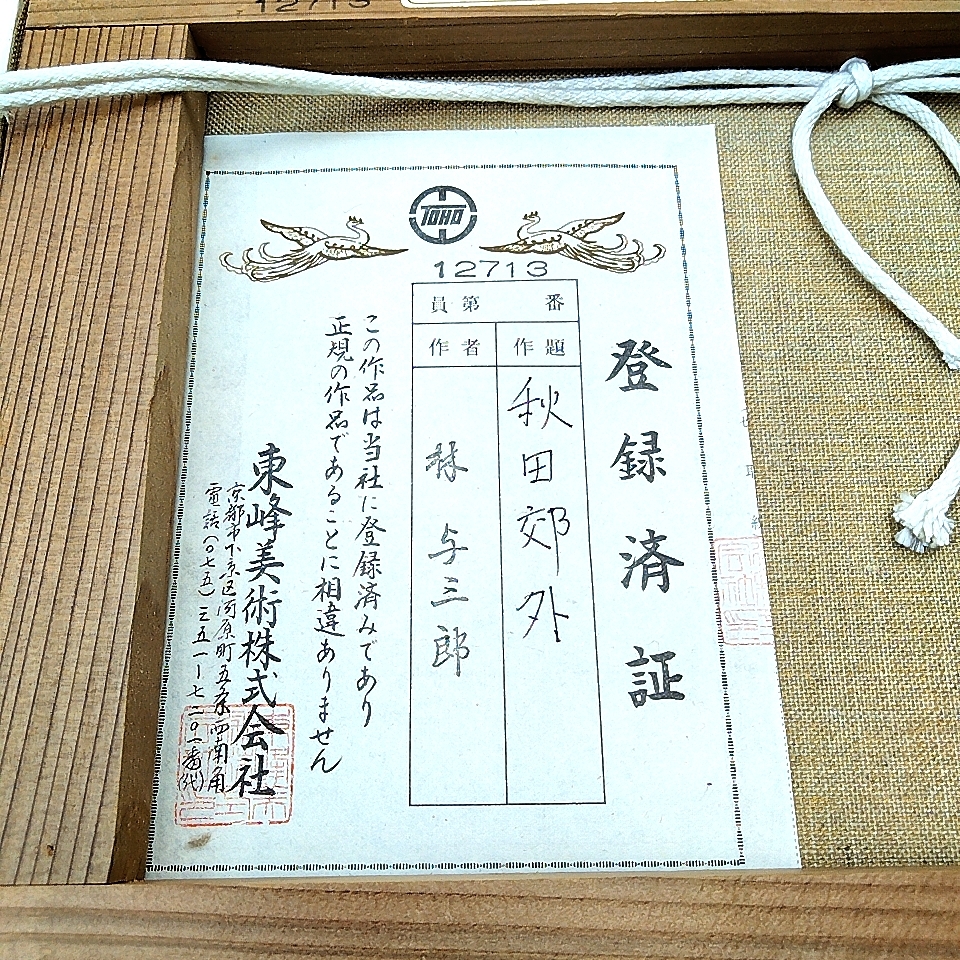 12713
TOHO
12713
員第 番
登録済証
作題
秋田郊外
作者
林 与三郎
この作品は当社に登録済みであり
正規の作品であることに相違ありません
東峰美術株式会社
京都市下京区河原町五条西南角
電話(〇七五)三五一ー七二〇一番(代)